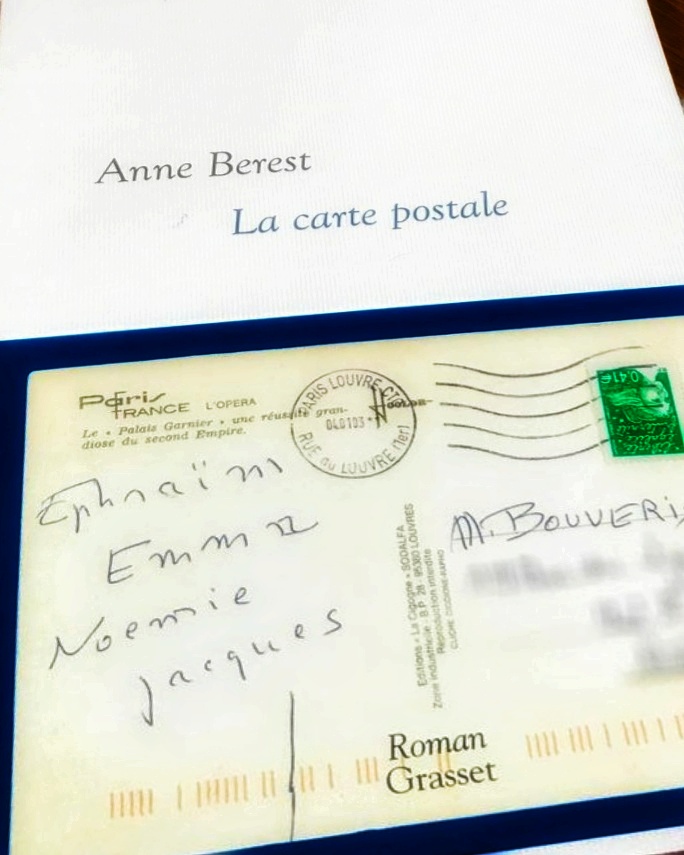 Anne Berest
La carte postale
Paris
FRANCE L'OPERA
Le « Palais Garnier » une réussite gran-
diose du second Empire.
PARIS LOUVRE CTC
040103
RUE du LOUVRE (1er)
0,41€
Ephraïm
Emma
Noemie
Jacques
M. BOUVERIS
Editions « La Cigogne » SODALFA
Zone industrielle - B.P. 28 - 95380 LOUVRES
Reproduction interdite
Roman
Grasset